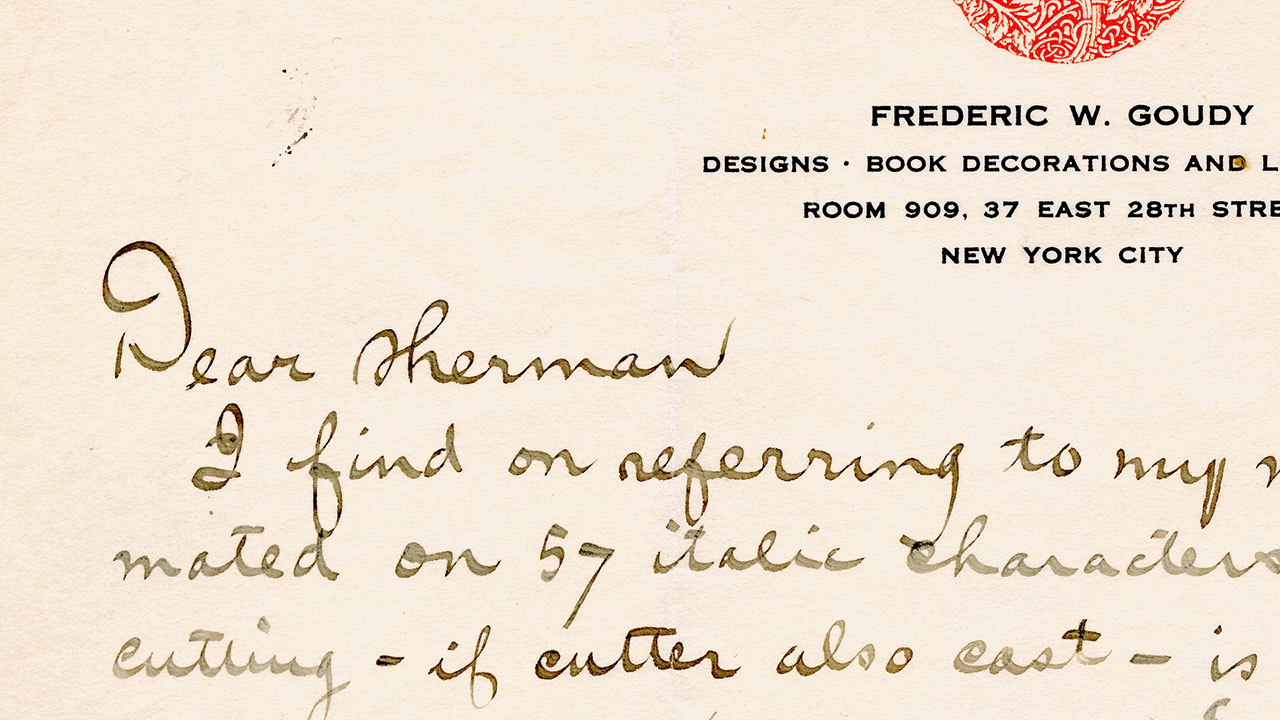 FREDERIC W. GOUDY
DESIGNS · BOOK DECORATIONS AND L
ROOM 909, 37 EAST 28TH STRE
NEW YORK CITY
Dear Sherman
I find on referring to my
mated on 57 italic characters
cutting - if cutter also cast - is